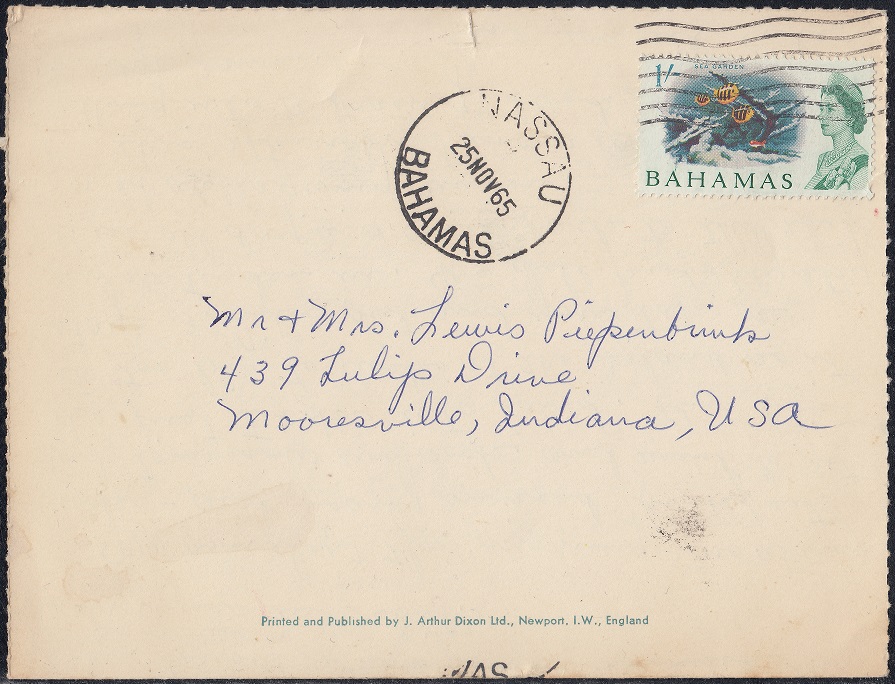 1/-
SEA GARDEN
BAHAMAS
NASSAU
25NOV65
BAHAMAS
Mr & Mrs. Lewis Piepenbrink
439 Tulip Drive
Mooresville, Indiana, USA
Printed and Published by J. Arthur Dixon Ltd., Newport. I.W., England